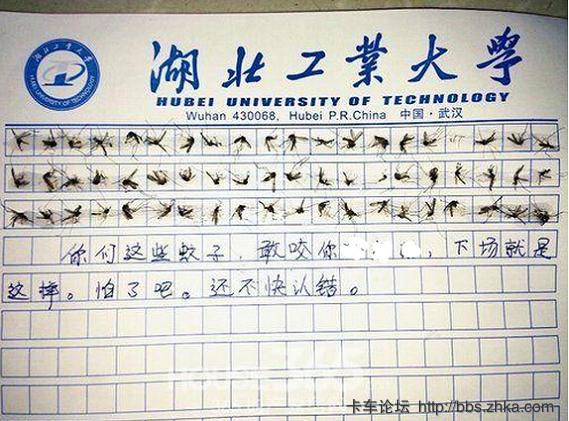 湖北工業大學
HUBEI UNIVERSITY OF TECHNOLOGY
Wuhan 430068, Hubei P.R.China 中国·武汉
你们这些蚊子，敢咬你，下场就是
这样。怕了吧。还不快认错。
卡车论坛 http://bbs.zhka.com